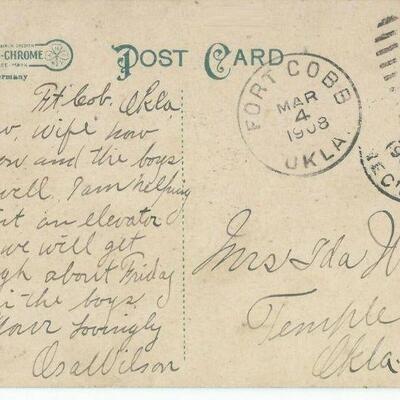 -CHROME
Germany
POST CARD
FORT COBB
MAR
4
1908
OKLA.
REC
Ft. Cob, Okla,
wife how
and the boys
well. I am helping
an elevator
we will get
about Friday
the boys.
Your Lovingly
Osa Wilson
Mrs Ida W
Temple
Okla